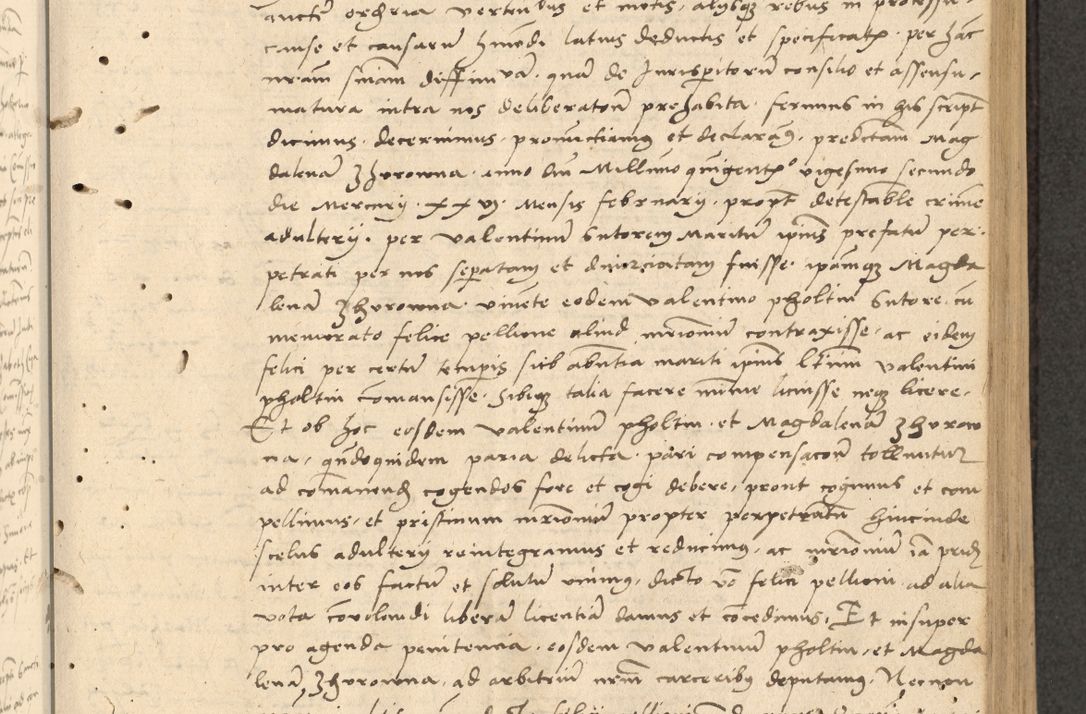 cause et causarum hmodi latius deductis et specificatis per hanc
nram sniam diffinitivam quam de Jurisperitorum consilio et assensu,
matura intra nos deliberatione prehabita ferimus in his script
dicimus decernimus pronuctiamus et declaramus predictam Mag
dalenam Zhurowna anno dni Millimo quigentmo vigesimo secundo
die Mercurij xxvj Mensis februarij propt detestabile crimen
adulterij per valentinum Sutorem Maritum ipius prefatum per
petrati per nos separatam et divorciatam fuisse ipamqz Magda
lenam Zhurowna vivente eodem valentino pholtin Sutore cu
memorato felice pellione aliud mrimonium contraxisse ac eidem
felici per certum temporis sub abntia mariti ipius ltimi valentini
pholtin comansisse, sibiqz talia facere minime licuisse neqz licere.
Et ob hoc eosdem valentinum pholtin et Magdalenam Zhurow
na, quandoquidem paria delicta pari compensacone tolluntur
ad comanendum cogendos fore et cogi debere, prout cogimus et com
pellimus, et pristinum mrimonium propter perpetratum hincinde
scelus adulterij reintegramus et reducimus, ac mrimonium ia prid
inter eos factum et solutum unimus, dicto vo felici pellioni ad alia
vota convolandi liberam licentiam damus et concedimus, Et insuper
pro agenda penitencia eosdem valentinum pholtin et Magda
lenam Zhurowna ad arbitrium nrm carceribus deputamus. Necnon